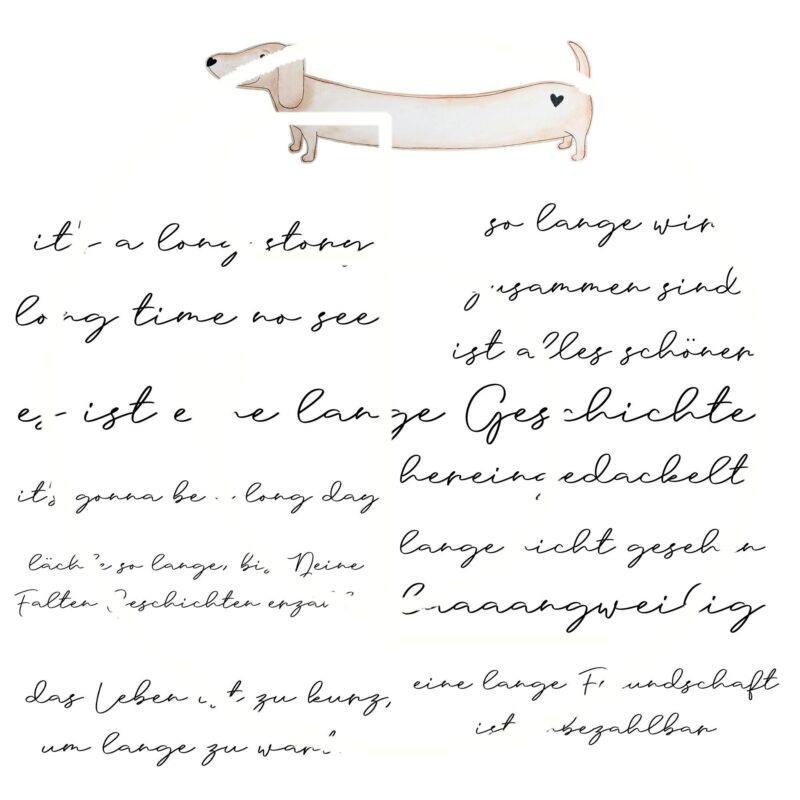 it's a long story
long time no see
es ist eine lange Geschichte
it's gonna be a long day
lächle so lange, bis Deine
Falten Geschichten
das Leben ist zu kurz,
um lange zu
so lange wir
zusammen sind
ist alles schöner
hereingedackelt
lange nicht gesehen
eine lange Freundschaft
ist unbezahlbar